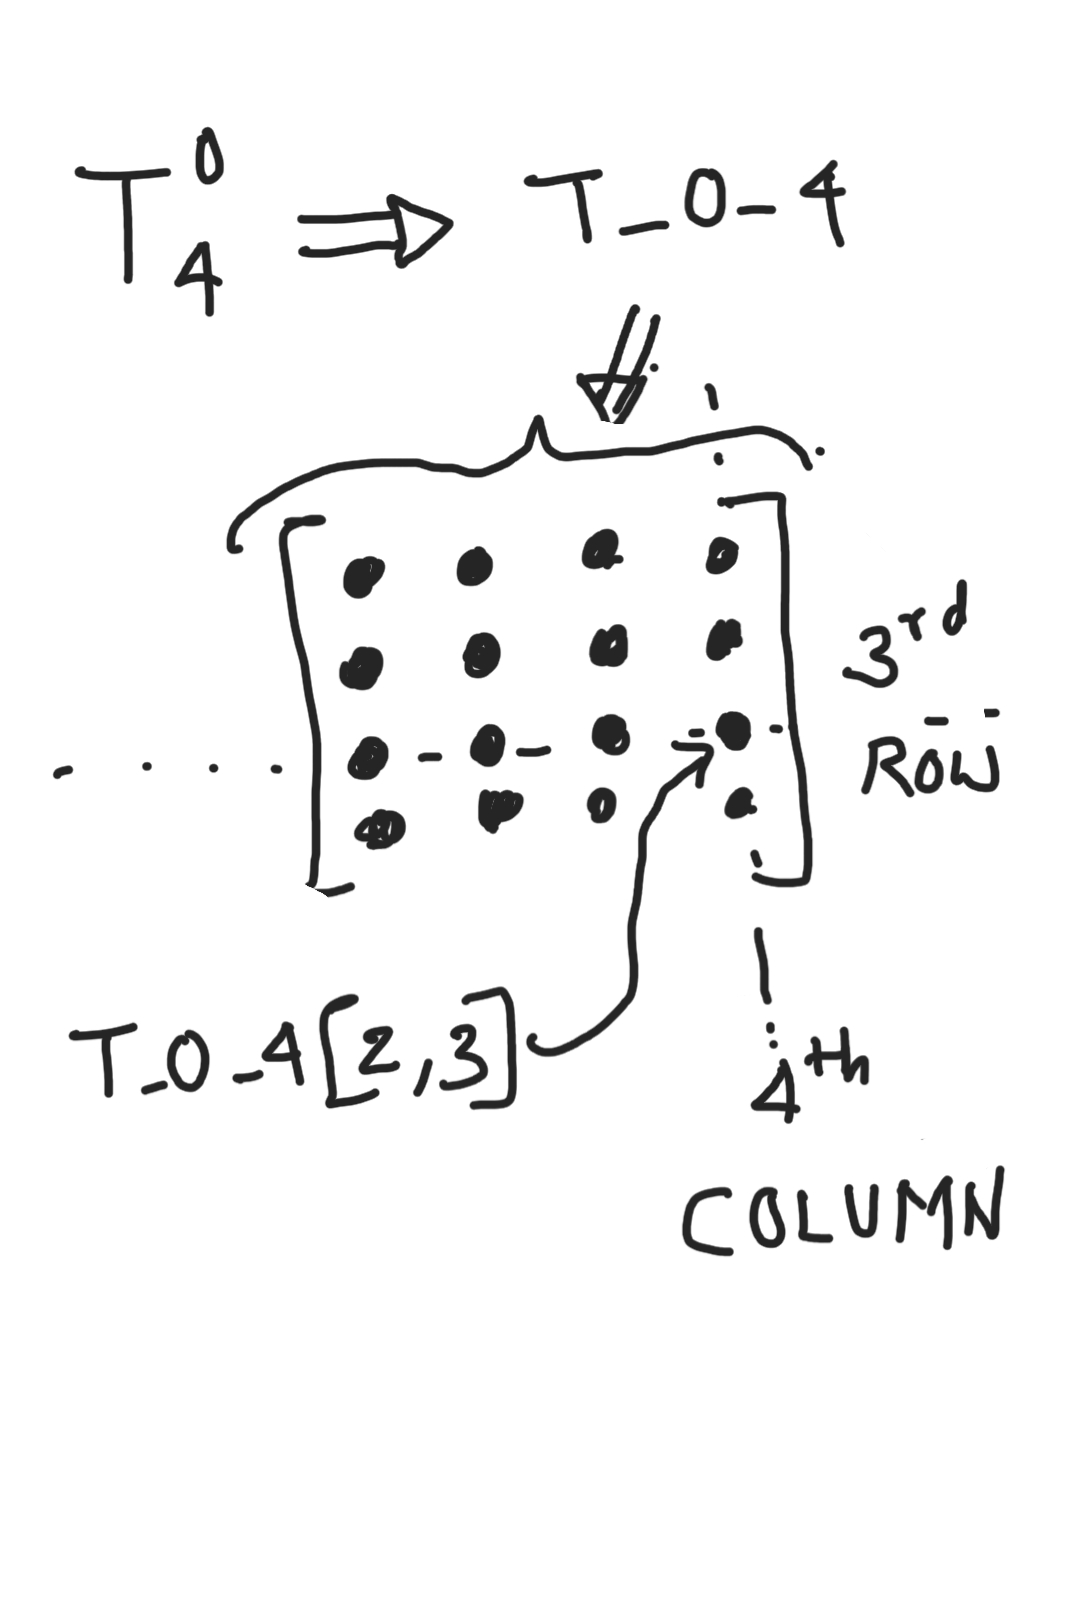 T⁰₄ ⇒ T_0_4
3rd
ROW
T_0_4[2,3]
4th
COLUMN